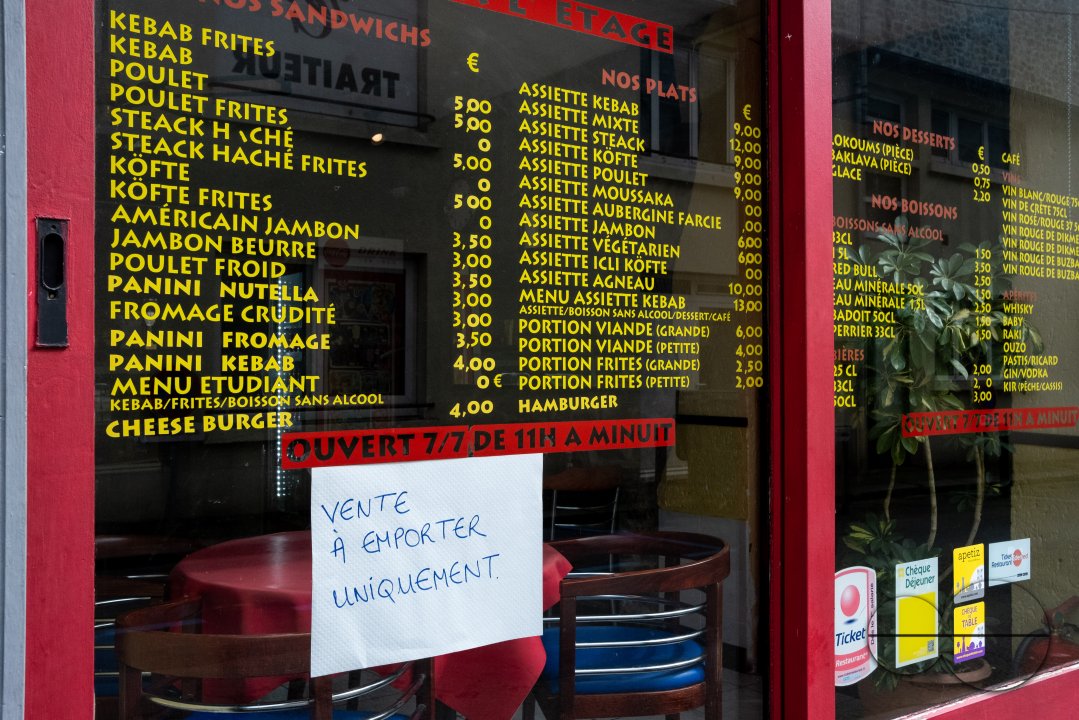 NOS SANDWICHS
KEBAB FRITES
KEBAB
POULET
POULET FRITES
STEACK HACHÉ
STEACK HACHÉ FRITES
KÖFTE
KÖFTE FRITES
AMÉRICAIN JAMBON
JAMBON BEURRE
POULET FROID
PANINI NUTELLA
FROMAGE CRUDITÉ
PANINI FROMAGE
PANINI KEBAB
MENU ETUDIANT
KEBAB/FRITES/BOISSON SANS ALCOOL
CHEESE BURGER
€
5,00
5,00
0
5,00
0
5 00
0
3,50
3,00
3,50
3,00
3,00
3,50
4,00
0 €
4,00
L'ÉTAGE
TRAITEUR
NOS PLATS
€
ASSIETTE KEBAB 9,00
ASSIETTE MIXTE 12,00
ASSIETTE STEACK 9,00
ASSIETTE KÖFTE 9,00
ASSIETTE POULET 9,00
ASSIETTE MOUSSAKA 00
ASSIETTE AUBERGINE FARCIE ,00
ASSIETTE JAMBON 6,00
ASSIETTE VÉGÉTARIEN 6,00
ASSIETTE ICLI KÖFTE 00
ASSIETTE AGNEAU 10,00
MENU ASSIETTE KEBAB 13,00
ASSIETTE/BOISSON SANS ALCOOL/DESSERT/CAFÉ
PORTION VIANDE (GRANDE) 6,00
PORTION VIANDE (PETITE) 4,00
PORTION FRITES (GRANDE) 2,50
PORTION FRITES (PETITE) 2,00
HAMBURGER
OUVERT 7/7 DE 11H A MINUIT
VENTE
À EMPORTER
UNIQUEMENT.
NOS DESSERTS
€
LOKOUMS (PIÈCE) 0,50
BAKLAVA (PIÈCE) 0,75
GLACE 2,20
NOS BOISSONS
BOISSONS SANS ALCOOL
33CL 1,50
1,5L 3,50
RED BULL 2,50
EAU MINÉRALE 50CL 1,50
EAU MINÉRALE 1,5L
BADOIT 50CL 1,50
PERRIER 33CL
BIÈRES
25 CL 2,00
33CL 2,00
50CL 3,00
CAFÉ
VINS
VIN BLANC/ROUGE 75
VIN DE CRÈTE 75CL
VIN ROSÉ/ROUGE 37 5
VIN ROUGE DE DIKME
VIN ROUGE DE DIKM
VIN ROUGE DE BUZBA
VIN ROUGE DE BUZBA
APÉRITIFS
WHISKY
BABY
RAKI
OUZO
PASTIS/RICARD
GIN/VODKA
KIR (PÊCHE/CASSIS)
OUVERT 7/7 DE 11H A MINUIT
Ticket
Restaurant
Chèque
Déjeuner
apetiz
CHÈQUE
de
TABLE
Ticket
Restaurant